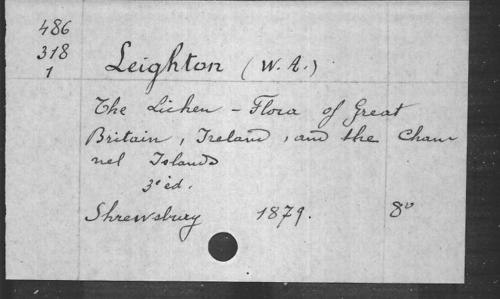 486
318
1
Leighton (W. A.)
The Lichen - Flora of Great
Britain, Ireland, and the Chan
nel Islands
3e éd.
Shrewsbury 1879. 8o